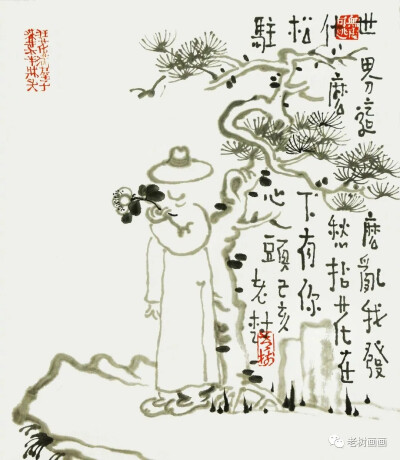 世界這麼亂我發
什麼愁拈花在
松下有你
駐心頭己亥老樹
老树画画